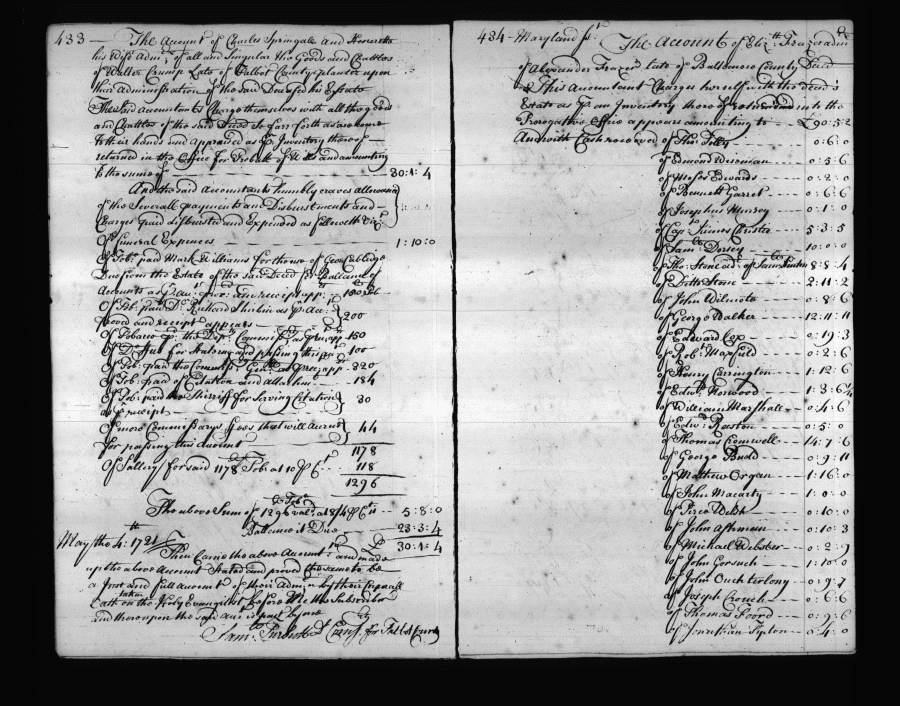 433 — The Account of Charles Springale And Henerretta
his Wife Adm.x of all and Singular the Goods and Chattles
of Walter Crump Late of Talbot County planter upon
their Administration of the said Deceased his Estate
The said Accountants Charge themselves with all the goods
and Chattles of the said Deced So farr forth as are come
to their hands and Appraised as p.r Inventory thereof
returned in the Office for Probate of Wills and amounting
to the sume of — 30:1:4
And the said Accountants humbly craves allowance
of the Severall payments and Disbursments and
Charges paid disbursted and Expended as followeth viz.t
Of Funeral Expences — 1:10:0
Of Tob.o paid Mark Williams for the use of Geo:
Due from the Estate of the said Deced p.r Ballance of
Accounts as p.r Acc.t and receipt app.r
Of Tob.o paid D.r Richard as p.r Acc.t
proved and receipt appears — 200
Of Tobacco p.d the Dep.ty Commiss.ry as p.r rec.t app.r 150
Of D.o for Stateing and passing this acc.t 100
Of Tob.o paid the Commiss.ry Gen.ll as p.r rec.t app.r 320
Of Tob.o paid of Citation and Attachm.t — 184
Of Tob.o paid the Shirriff for Serving Citation 30
as p.r receipt
Of more Commissarys ffees that will Accrue 44
for passing this Account
1178
Of Sallery for said 1178 Tob.o at 10 p C.t — 118
1296
The above Sum of 1296 Tob.o val.d at 8/4 p C.t is — 5:8:0
Ballance is Due — 23:3:4
£ 30:1:4
May the 4.th 1721
Then Came the above Accompt.s and made
up the above Account Stated and proved the same to be
a Just and full account of their Adm.n by their Corporall
Oath taken on the Holy Evangelist before Me the Subscriber
and thereupon the said Acc.t is past by me
Sam.ll Com.y for Talbot County
434 — Maryland ss.t The Account of Eliz.th Frazer adm.x
of Alexander Frazer Late of Baltemore County Deced
This Accountant Charges herself with the deced's
Estate as p.r an Inventory thereof returned into the
Prerogative Office appears amounting to — £ 90:5:2
And with Cash received of Petty 0:6:0
of Edmond Wiseman — 0:5:6
of Moses Edwards — 0:2:0
of Bennett Garret — 0:6:6
of Josephus Murrey — 0:1:0
of Cap.t James Christie — 5:3:5
of Sam.ll Dorsey — 10:0:0
of Tho: Stone ad.r of Sam.ll Hinton 8:8:4
of Ditto Stone — 2:11:2
of John Wilmote — 0:8:6
of George Walker — 12:11:11
of Edward Cox — 0:19:3
of Rob.t Maxfield — 0:2:6
of Henry Carrington — 1:12:6
of Edw.d Norwood — 1:3:6¼
of William Marshall — 0:4:6
of Edw.d Roston — 0:5:0
of Thomas Cromwell — 14:7:6
of George Budd — 0:9:11
of Mathew Organ — 1:16:0
of John Macarty — 1:0:0
of Pirce Welsh — 0:10:0
of John Ashman — 0:10:3
of Michael Webster — 0:2:9
of John Gorsuch — 1:10:0
of John Ouchterlony — 0:9:7
of Joseph Crouch — 0:6:6
of Thomas Foord — 0:9:6
of Jonathan Tipton — 0:4:0